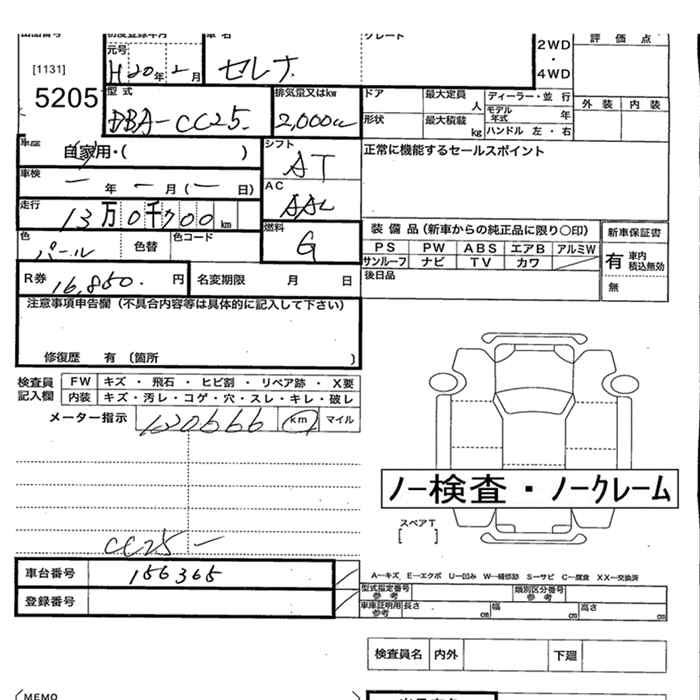 初度登録年月 車 名 グレード
元号
[1131]
5205
H20年2月 セレナ
2WD
・
4WD
評 価 点
外 装 内 装
型 式
DBA-CC25.
排気量又はkw
2,000cc
ドア 最大定員 人
形状 最大積載 kg
ディーラー・並 行
モデル年式 年
ハンドル 左・右
自家用・( )
シフト
AT
正常に機能するセールスポイント
車検 ー 年 ー 月(ー 日)
AC
AAC
走行 13万0千700 km
燃料
G
色 パール 色替 色コード
装 備 品(新車からの純正品に限り〇印) 新車保証書
PS PW ABS エアB アルミW
サンルーフ ナビ TV カワ
後日品
有 車内積込無効
無
R券 16,850. 円 名変期限 月 日
注意事項申告欄(不具合内容等は具体的に記入して下さい)
修復歴 有 (箇所 )
検査員記入欄
FW キズ・飛石・ヒビ割・リペア跡・X要
内装 キズ・汚レ・コゲ・穴・スレ・キレ・破レ
メーター指示 130666 km マイル
ノー検査・ノークレーム
スペアT
[ ]
CC25-
車台番号 156365
登録番号
A―キズ E―エクボ U―凹み W―補修跡 S―サビ C―腐食 XX―交換済
型式指定番号参 考 類別区分番号参 考
車庫証明用参考 長さ cm 幅 cm 高さ cm
検査員名 内外 下廻
(MEMO